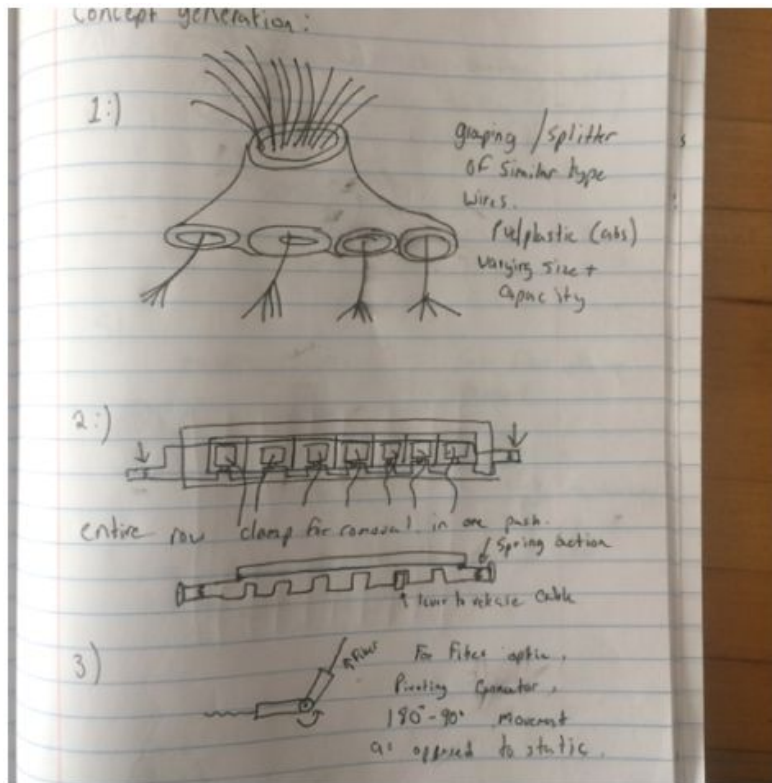 Concept generation:
1:)
grouping / splitter
of similar type
wires.
Pvc/plastic (abs)
varying size +
capacity
2:)
entire row clamp for removal in one push.
Spring action
lever to release cable
3)
Fiber
For Fiber optic,
Pivoting Connector,
180°-90° movement
as opposed to static.